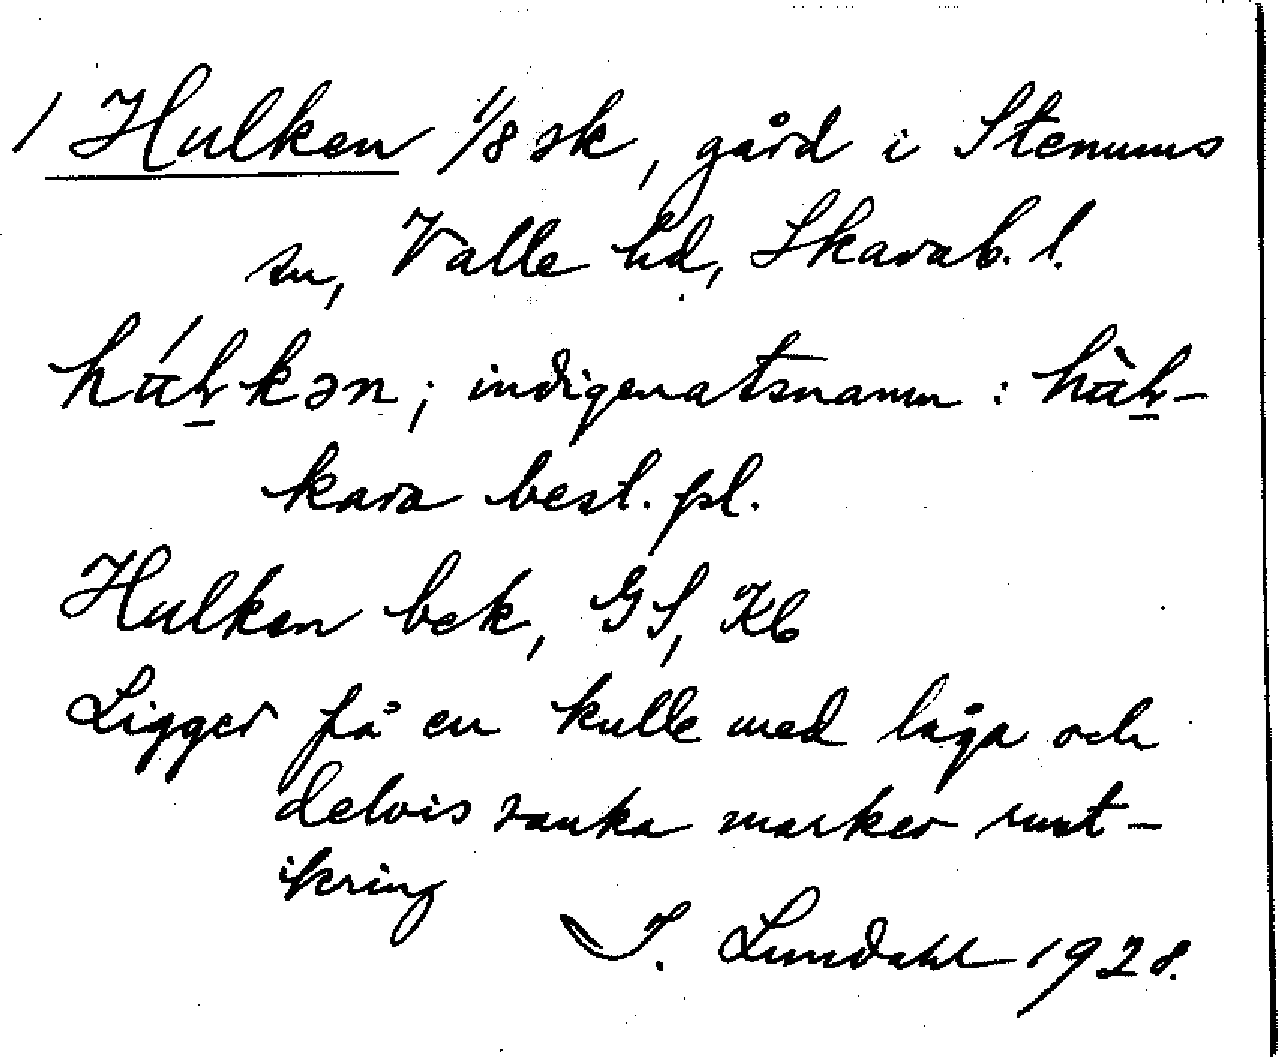 / Hulken 1/8 sk, gård i Stenums
sn, Valle hd, Skarab. l.
indigenatsnamn :
kara best. pl.
Hulken bek, GS, Kb
Ligger på en kulle med låga och
delvis sanka marker runt-
ikring
I. Lundahl 1928.